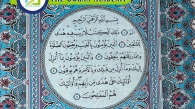 THE QURAN ACADEMY
بسم الله الرحمن الرحيم
الم ذلك الكتاب لا ريب فيه هدى
للمتقين الذين يؤمنون بالغيب ويقيمون
الصلوة ومما رزقناهم ينفقون والذين يؤمنون
بما أنزل إليك وما أنزل من قبلك وبالآخرة هم يوقنون
أولئك على هدى من ربهم وأولئك
هم المفلحون